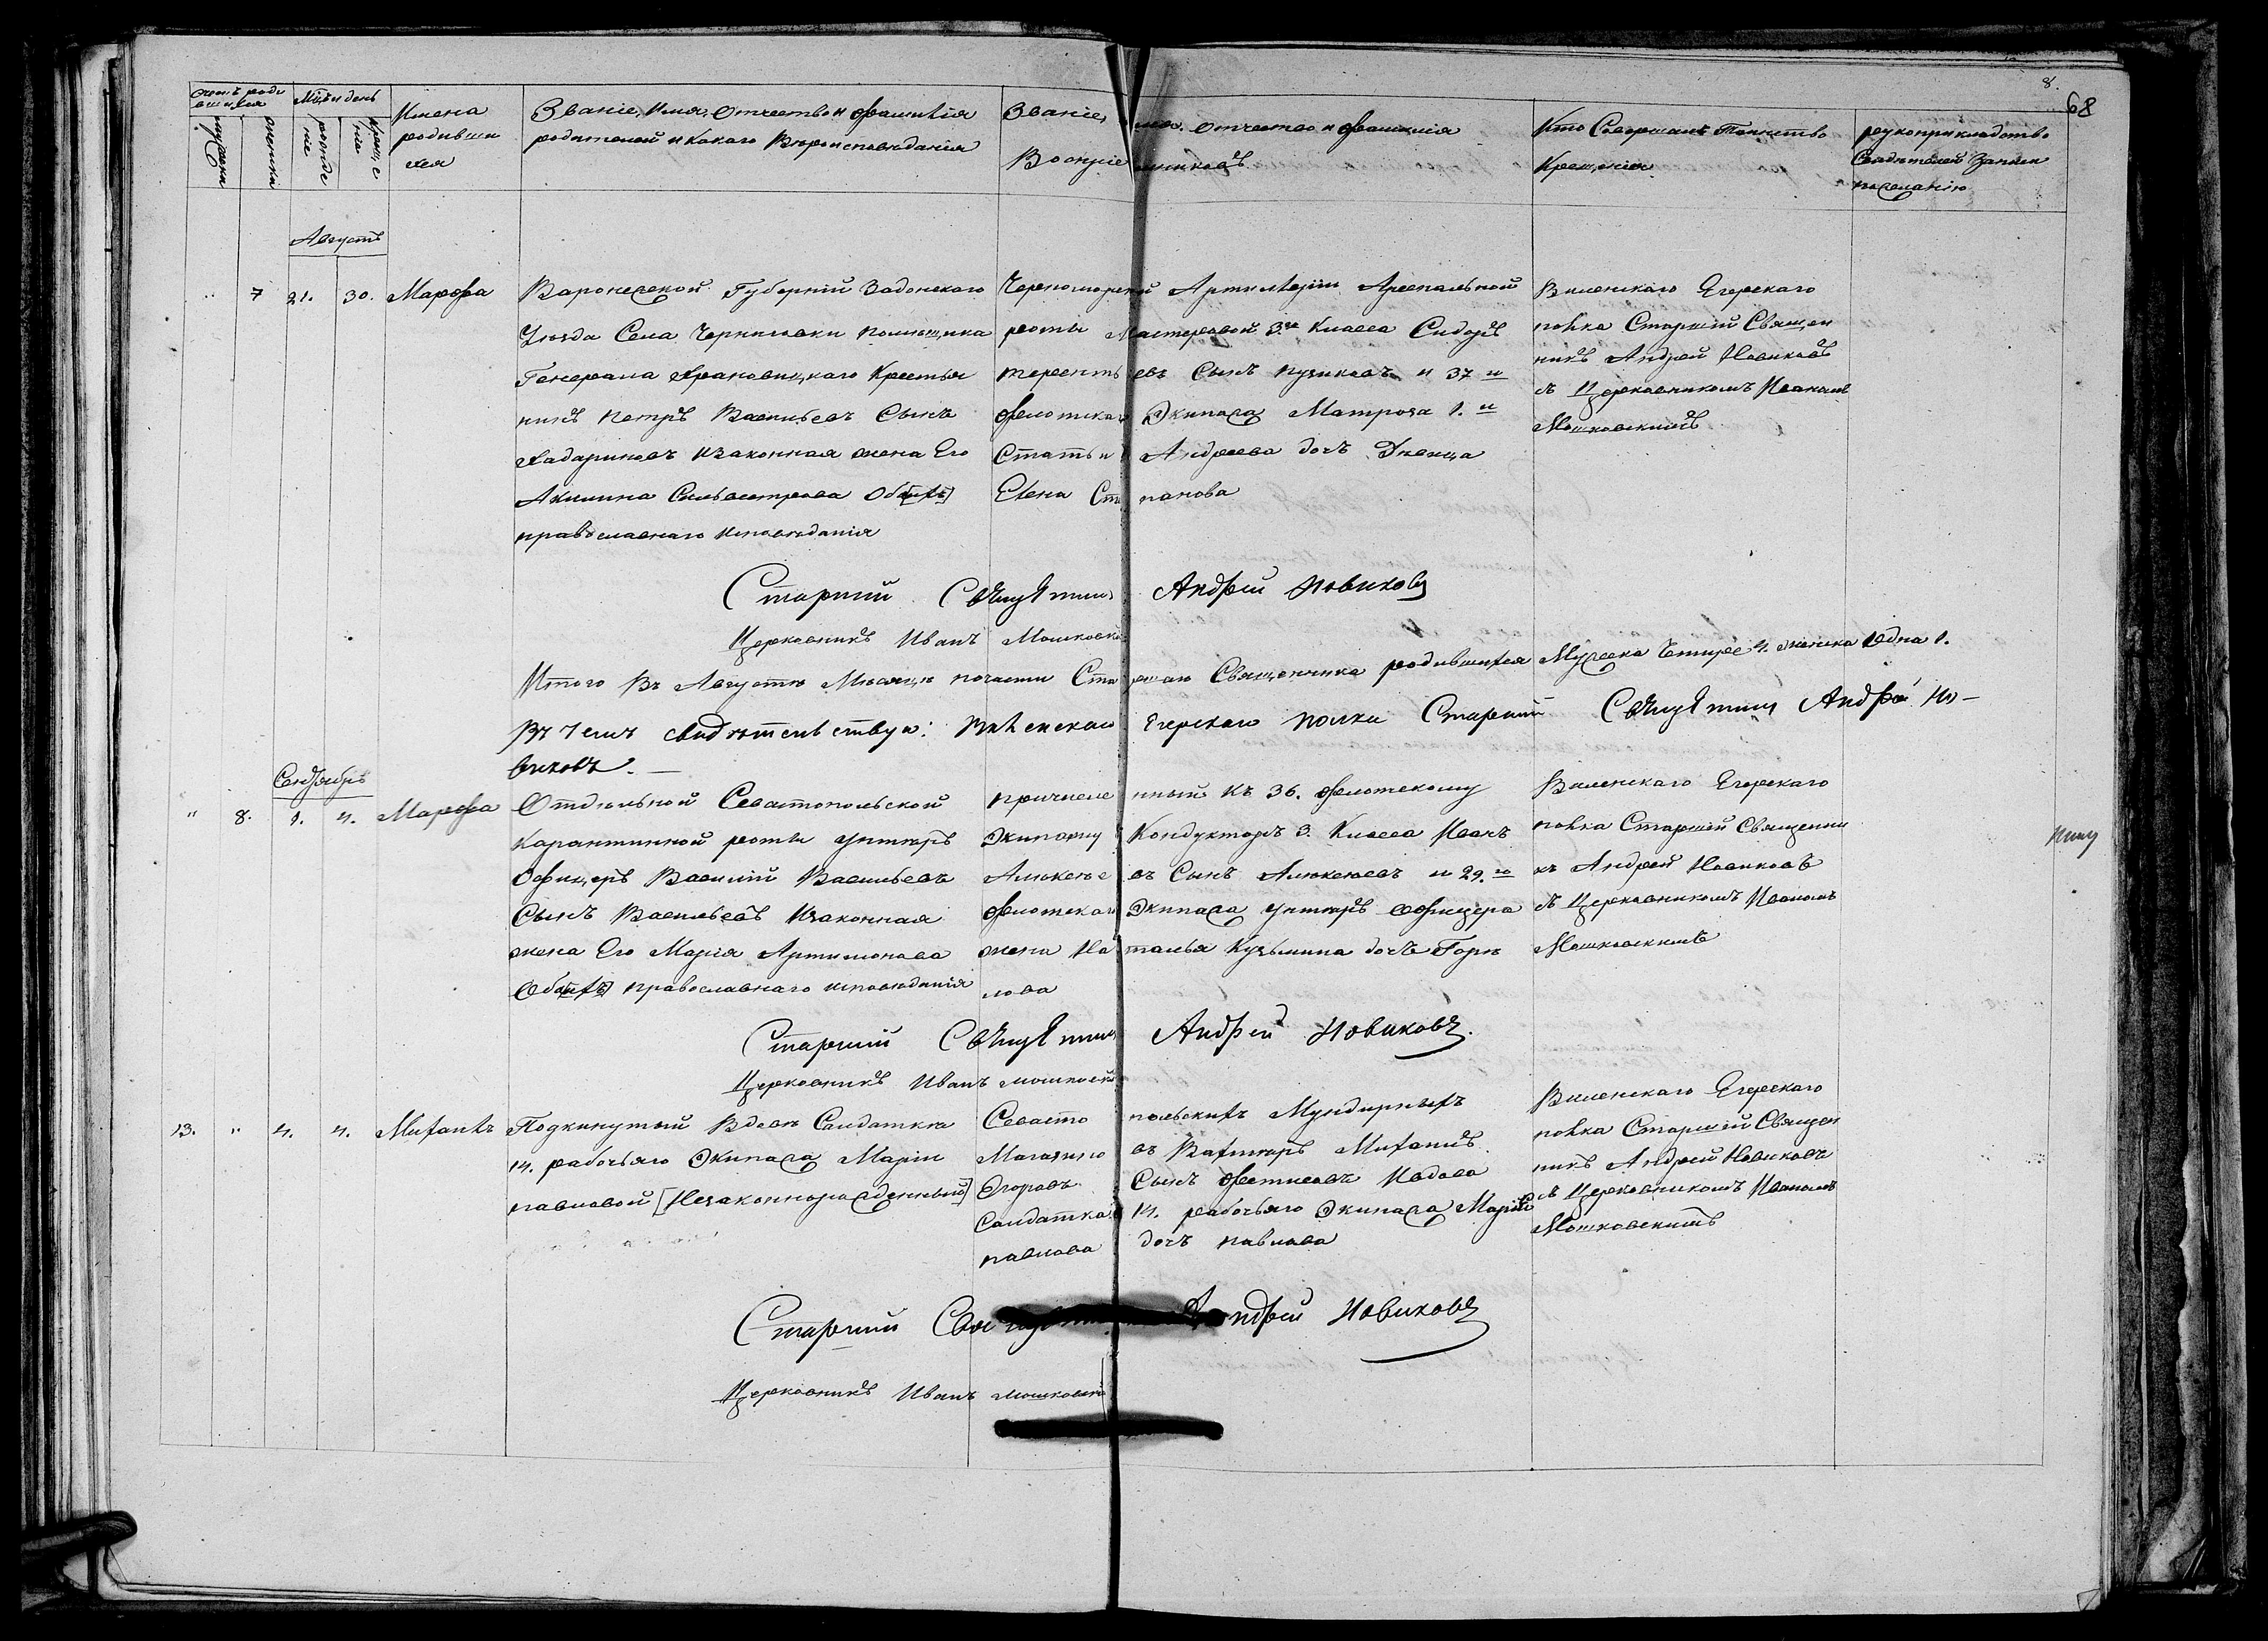 8.
68
Счетъ роди
вшихся
Мѣсц. и день
мужска
женска
рожде
ніе
креще
ніе
Имена
родивши
хся
Званіе, имя, отчество и фамилія
родителей и какого вѣроисповѣданія
Званіе, имя, отчество и фамилія
Воспріемниковъ
Кто совершалъ таинство
Крещенія
рукоприкладство
свидѣтелей записи
по желанію
Августъ
" 7 21. 30. Марѳа
Варонежской Губерній Задонского
Уѣзда Села Черниговки помѣщика
Генерала Храповицкаго Крестья
нинъ Петръ Васильевъ Сынъ
Хадариновъ и законная жена Его
Акилина Сильвестрова Обаихъ
православнаго исповѣданія
Черноморской Артилеріи Арсенальной
роты Мастеровой 3.го Класса Сидоръ
терентьевъ Сынъ пузиковъ и 37 го
флотскаго Экипажа Матроза 1. й
Статьи Андреева дочь Дѣвица
Елена Степанова
Виленскаго Егерскаго
полка Старшій Священ
никъ Андрей Новиковъ
съ Церковникомъ Иваномъ
Мошковскимъ
Старший Священникъ Андрей Новиковъ
Церковникъ Иванъ Мошковскій
Итого Въ Августѣ Мѣсяцѣ почасти Старшаго Священника родившихся Мужеска Четыре 4. женска Одна 1.
въ чемъ свидѣтельствую: Виленскаго Егерскаго полка Старший Священникъ Андрей Но-
виковъ. —
Сентябрь
" 8. 1. 4. Марѳа
Отдѣльной Севастопольской
карантинной роты унтеръ
Офицеръ Василій Васильевъ
Сынъ Васильевъ и законная
жена Его Марія Артимонова
Обаихъ православнаго исповѣданія
причисленный къ 36. флотскому
Экипажу Кондукторъ 3. Класса Иванъ
Алѣксѣевъ Сынъ Алѣксѣевъ и 29. го
флотскаго Экипажа унтеръ офицера
жена Наталья Кузьмина дочь Горѣ
лова
Виленскаго Егерскаго
полка Старшій Священни
къ Андрей Новиковъ
съ Церковникомъ Иваномъ
Мошковскимъ
Старший Священникъ Андрей Новиковъ.
Церковникъ Иванъ Мошковскій
13. " 4. 4. Михаилъ
Подкинутый Вдовѣ Салдаткѣ
14. рабочьяго Экипажа Маріи
павловой [Незаконнорожденный]
Севастопольскихъ Мундирныхъ
Магазиновъ Вахтеръ Михаилъ
Егоровъ Сынъ Вдова
Салдатка 14. рабочьяго Экипажа Марія
павлова дочь павлова
Виленскаго Егерскаго
полка Старшій Священ
никъ Андрей Новиковъ
съ Церковникомъ Иваномъ
Мошковскимъ
Старший Андрей Новиковъ
Церковникъ Иванъ Мошковскій